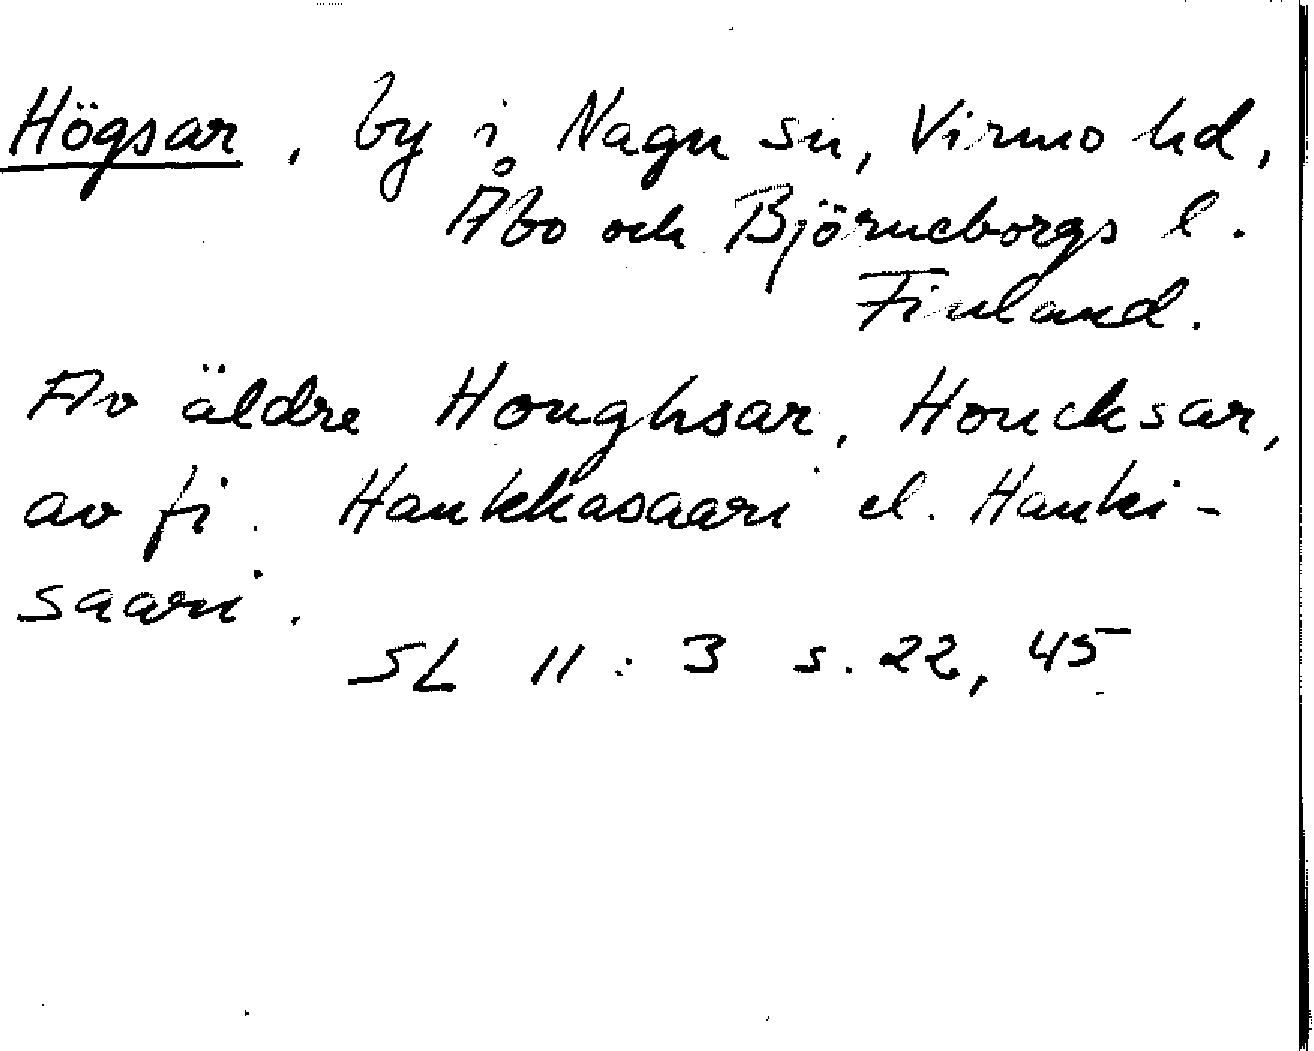 Högsar, by i Nagu sn, Virmo hd,
Åbo och Björneborgs l.
Finland.
Av äldre Houghsar, Houcksar,
av fi. Haukkasaari el. Hauki-
saari.
SL 11:3 s. 22, 45